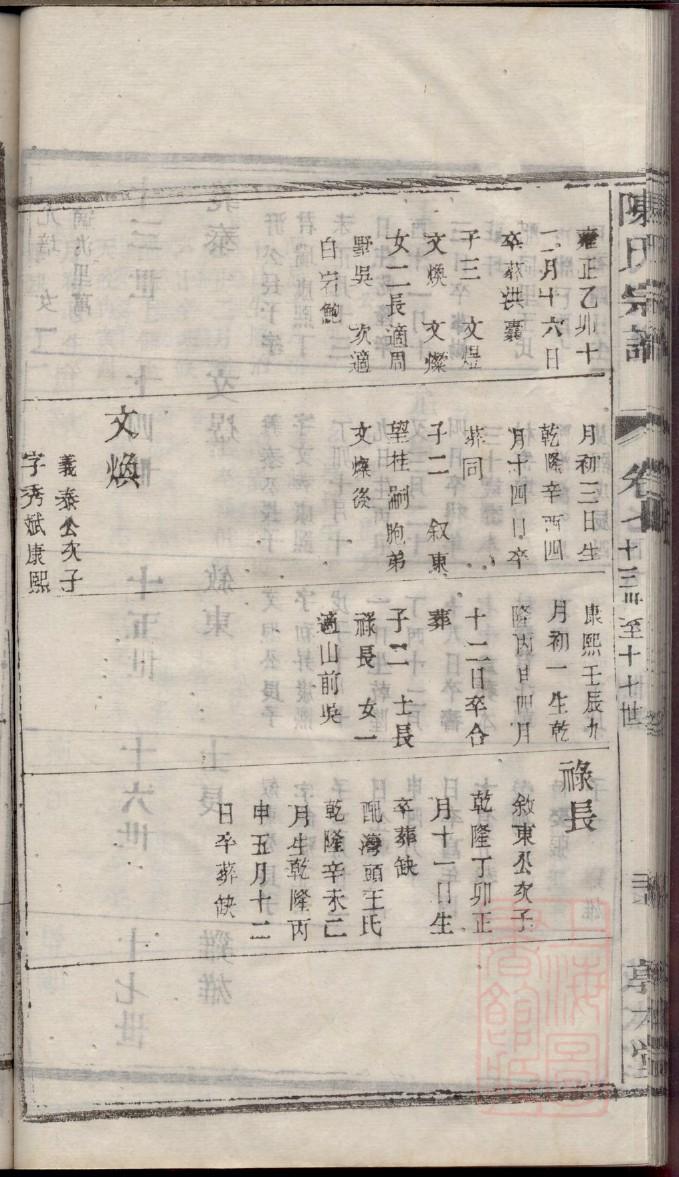 陳氏宗譜
卷七
十三世至十七世
雍正乙卯十
二月十六日
卒葬洪囊
子三 文煜
文煥 文燦
女二長適周
野吳 次適
白宕鮑
月初三日生
乾隆辛酉四
月十四日卒
葬同
子二 叙東
望桂嗣胞弟
文燦後
文煥
義泰公次子
字秀斌康熙
康熙壬辰九
月初一生乾
隆丙申四月
十二日卒合
葬
子二 士長
祿長 女一
適山前吳
祿長
敘東公次子
乾隆丁卯正
月十一日生
卒葬缺
配灣頭王氏
乾隆辛未二
月生乾隆丙
申五月十二
日卒葬缺